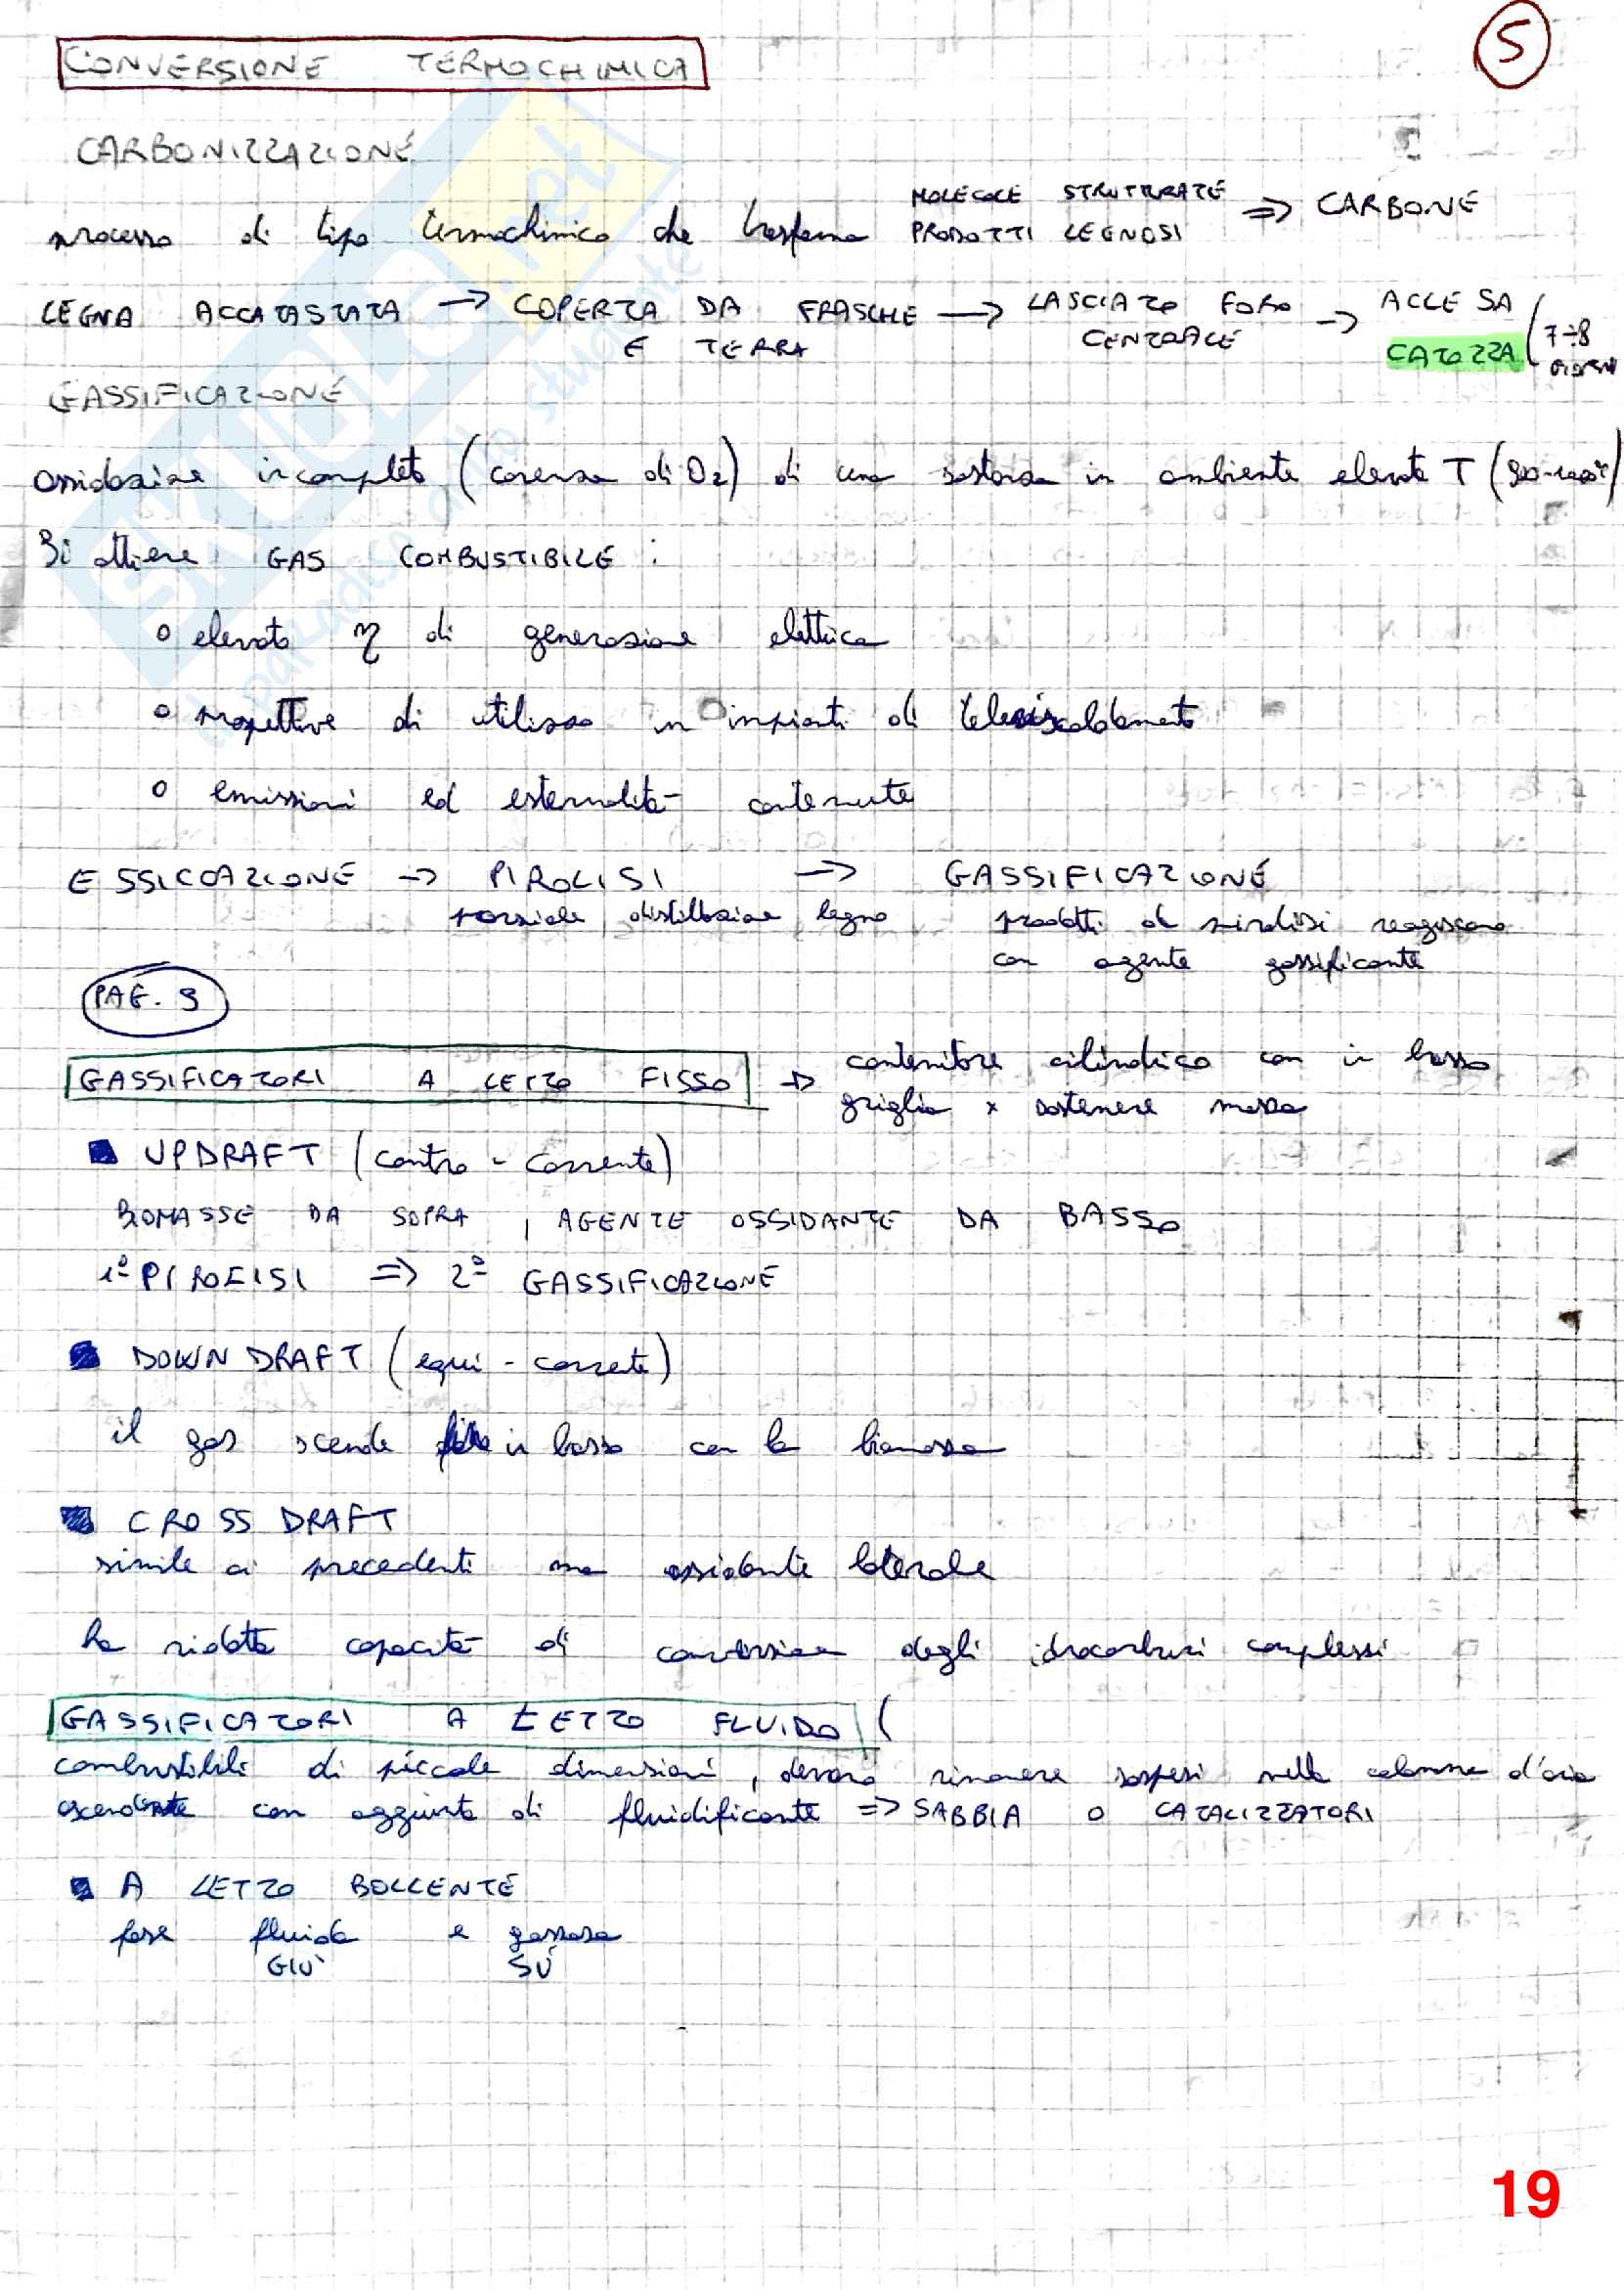 CONVERSIONE TERMOCHIMICA
5
CARBONIZZAZIONE
processo di tipo termochimico che trasforma MOLECOLE STRUTTURATE PRODOTTI LEGNOSI => CARBONE
LEGNA ACCATASTATA -> COPERTA DA FRASCHE E TERRA -> LASCIATO FORO CENTRALE -> ACCESA CATOZZA (7÷8 GIORNI
GASSIFICAZIONE
ossidazione incompleta (carenza di O2) di una sostanza in ambiente elevata T
Si ottiene GAS COMBUSTIBILE :
o elevato η di generazione elettrica
o prospettive di utilizzo in impianti di teleriscaldamento
o emissioni ed esternalità contenute
ESSICCAZIONE -> PIROLISI -> GASSIFICAZIONE
parziale distillazione legno prodotti di pirolisi reagiscono
con agente gassificante
PAG. 9
GASSIFICATORI A LETTO FISSO -> contenitore cilindrico con in basso
griglia x sostenere massa
UPDRAFT (contro - corrente)
BIOMASSE DA SOPRA, AGENTE OSSIDANTE DA BASSO
1º PIROLISI => 2º GASSIFICAZIONE
DOWN DRAFT (equi - corrente)
il gas scende in basso con la biomassa
CROSS DRAFT
simile ai precedenti ma ossidante laterale
ha ridotta capacità di conversione degli idrocarburi complessi
GASSIFICATORI A LETTO FLUIDO (
combustibili di piccole dimensioni, devono rimanere sospesi nella colonna d'aria
ascendente con aggiunta di fluidificante => SABBIA O CATALIZZATORI
A LETTO BOLLENTE
fase fluida e gassosa
GIÙ SÙ
19
SKUOLA.net
il paradiso dello studente